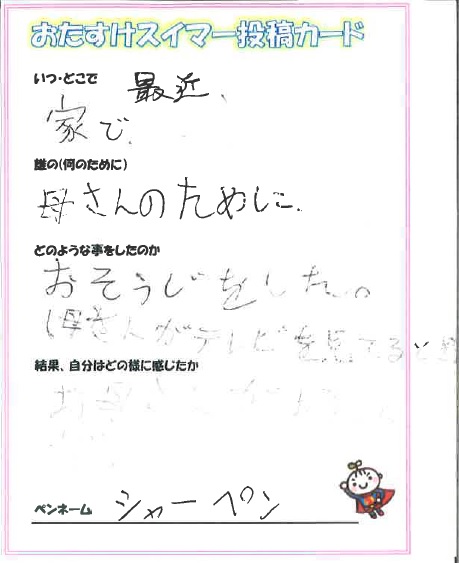 おたすけスイマー投稿カード
いつ・どこで 最近、
家で、
誰の(何のために)
母さんのために、
どのような事をしたのか
おそうじをした。
母さんがテレビを見てると
結果、自分はどの様に感じたか
お母さんが
ペンネーム シャーペン